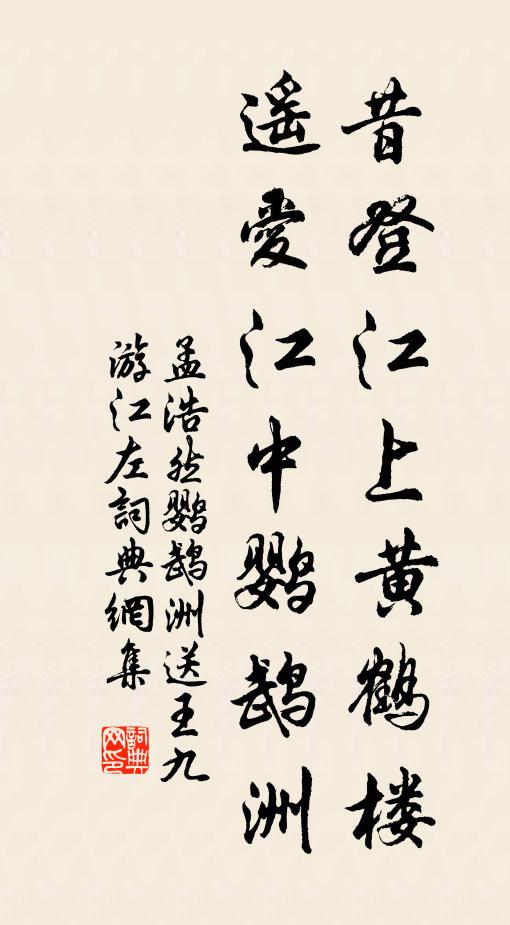 昔登江上黄鹤楼
遥愛江中鹦鹉洲
孟浩然鹦鹉洲送王九
游江左詞典網集
詞典
网印